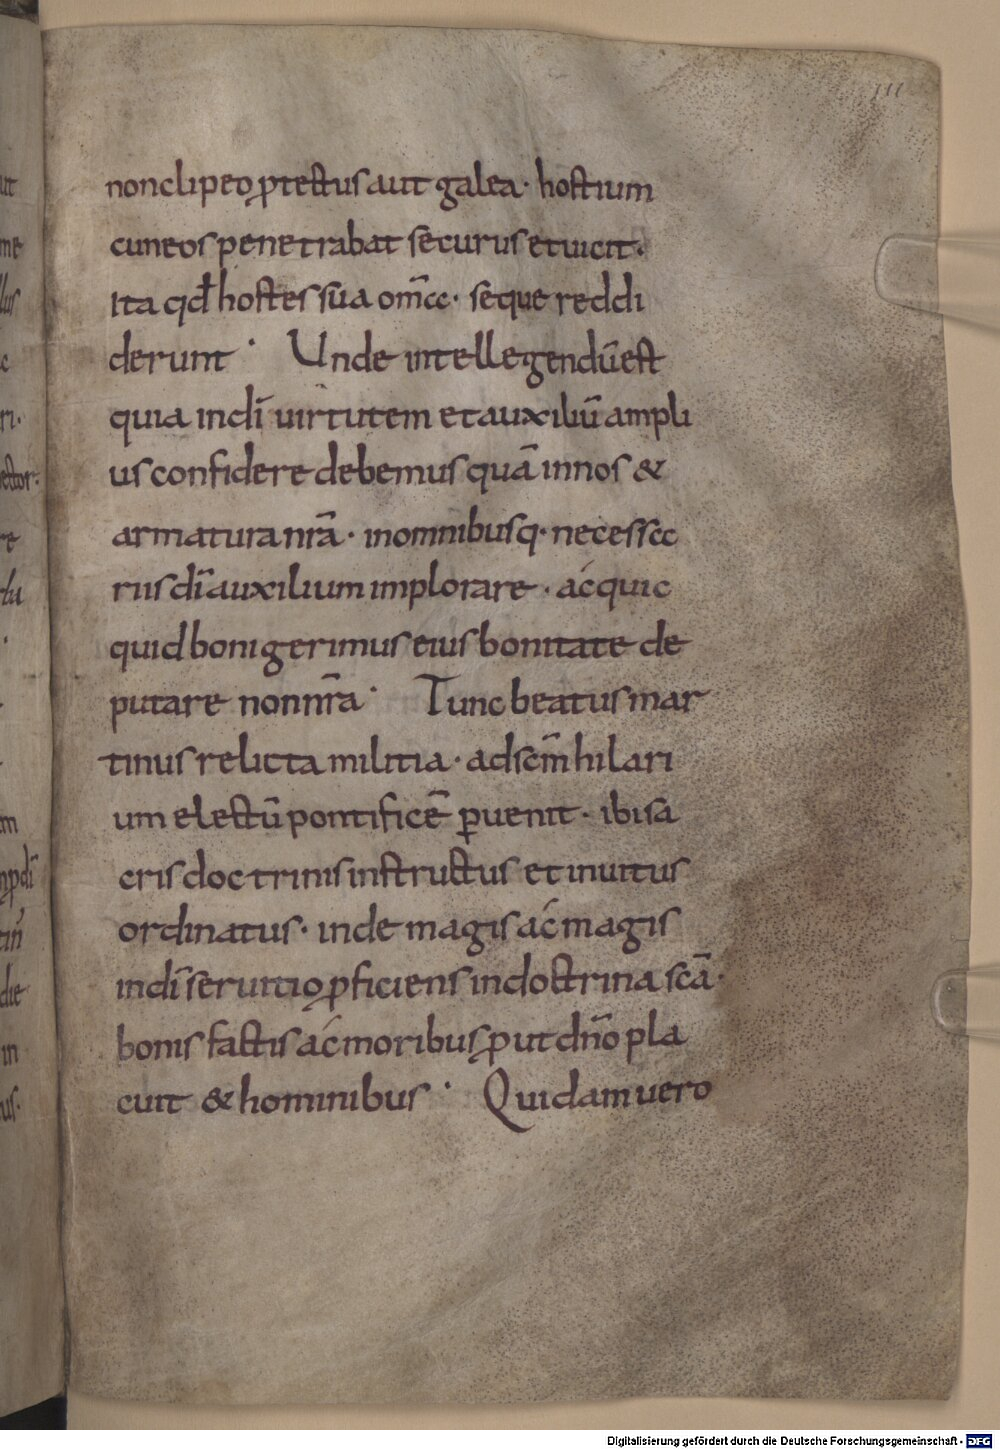 111
nonclipeo ꝓtectus aut galea· hostium
cuneos penetrabat securus et uicit·
Ita qđ hostes sua om̄ee· seque reddi
derunt · Unde intellegendū est
quia in dī uirtutem et auxiliū ampli
us confidere debemus quā in nos &
armatura nrā· in omnibusq· necessee
riis dī auxilium implorare · ac quic
quid boni gerimus eius bonitate de
putare non nrā · Tunc beatus mar
tinus relicta militia · ad scm̄ hilari
um electū pontificē ꝑuenit · ibi sa
cris doctrinis instructus et inuitus
ordinatus· inde magis ac magis
in dī seruitio ꝓficiens in doctrina scā·
bonis factis ac moribus ꝓut dn̄o pla
cuit & hominibus · Quidam uero
Digitalisierung gefördert durch die Deutsche Forschungsgemeinschaft - DFG